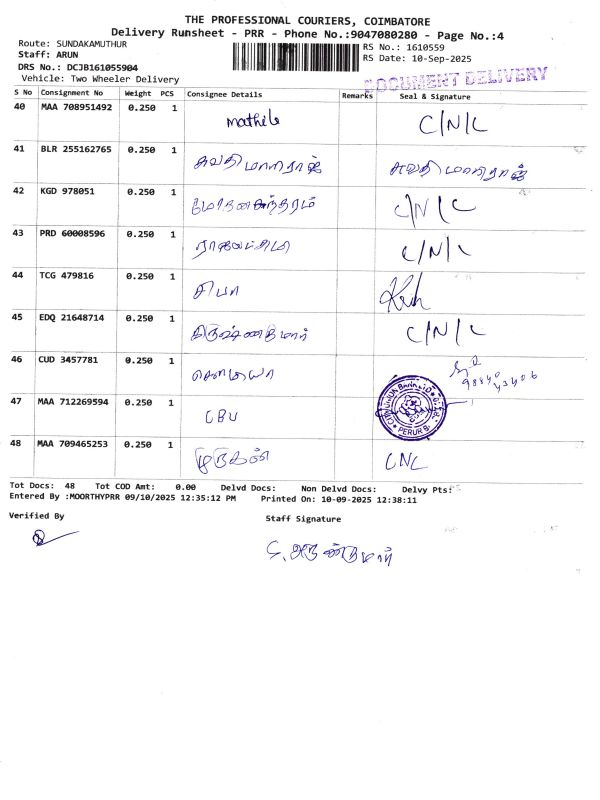 THE PROFESSIONAL COURIERS, COIMBATORE
Delivery Runsheet - PRR - Phone No.:9047080280 - Page No.:4
Route: SUNDAKAMUTHUR
Staff: ARUN
DRS No.: DCJB161055904
Vehicle: Two Wheeler Delivery
RS No.: 1610559
RS Date: 10-Sep-2025
DOCUMENT DELIVERY
S No Consignment No Weight PCS Consignee Details Remarks Seal & Signature
40 MAA 708951492 0.250 1 C/N/C
41 BLR 255162765 0.250 1
42 KGD 978051 0.250 1 C/N/C
43 PRD 60008596 0.250 1 C/N/C
44 TCG 479816 0.250 1 சிபா
45 EDQ 21648714 0.250 1 C/N/C
46 CUD 3457781 0.250 1
47 MAA 712269594 0.250 1 CBU
48 MAA 709465253 0.250 1 முருகன் CNC
Tot Docs: 48 Tot COD Amt: 0.00 Delvd Docs: Non Delvd Docs: Delvy Pts:
Entered By :MOORTHYPRR 09/10/2025 12:35:12 PM Printed On: 10-09-2025 12:38:11
Verified By
Staff Signature